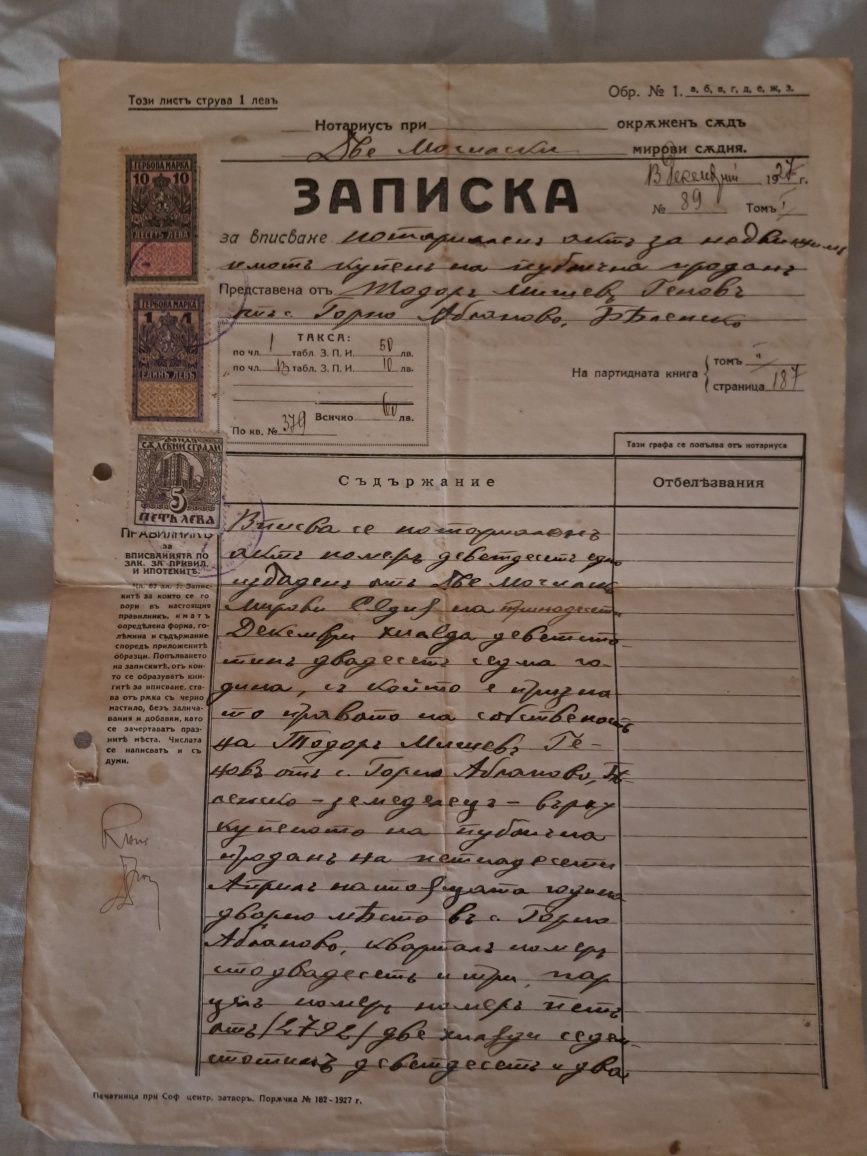 Този листъ струва 1 левъ
Обр. № 1. а, б, в, г, д, е, ж, з.
Нотариусъ при окрѫженъ сѫдъ
Две Могилски мирови сѫдия.
13 Декемврий 1927 г.
ЗАПИСКА
№ 89 Томъ I
за вписване нотариаленъ актъ за недвижимъ
имотъ купенъ на публична проданъ
Представена отъ Тодоръ Мишевъ Геновъ
отъ с. Горно Абланово, Бѣленско
ГЕРБОВА МАРКА
10 10
ДЕСЕТЬ ЛЕВА
ГЕРБОВА МАРКА
1 1
ЕДИНЪ ЛЕВЪ
ФОНДЪ
СѪДЕБНИ СГРАДИ
5
ПЕТЬ ЛЕВА
ТАКСА:
по чл. 1 табл. З. П. И. 50 лв.
по чл. 13 табл. З. П. И. 10 лв.
Всичко 60 лв.
По кв. № 379
На партидната книга
томъ II
страница 187
Тази графа се попълва отъ нотариуса
Съдържание
Отбелѣзвания
ПРАВИЛНИКЪ
за
ВПИСВАНИЯТА ПО
ЗАК. ЗА ПРИВИЛ.
И ИПОТЕКИТѢ.
Чл. 63 ал. 5: Запискитѣ за които се говори въ настоящия
правилникъ, иматъ
опредѣлена форма, голѣмина и съдържание
споредъ приложенитѣ
образци. Попълването
на запискитѣ, отъ които се образуватъ книгитѣ за вписване, става отъ рѫка съ черно
мастило, безъ заличавания и добавки, като
се зачертаватъ празнитѣ мѣста. Числата
се написватъ и съ
думи.
Вписва се нотариаленъ
актъ номеръ деветдесетъ едно
издаденъ отъ Две Могилски
Мирови Сѫдия на тринадесети
Декември хиляда деветсто-
тинъ двадесетъ седма го-
дина, съ който е призна-
то правото на собственость
на Тодоръ Мишевъ Ге-
новъ отъ с. Горно Абланово, Бѣ-
ленско - земеделецъ - върху
купеното на публична
проданъ на петнадесети
Априлъ настоящата година
дворно мѣсто въ с. Горно
Абланово, кварталъ номеръ
стодвадесетъ и три, пар
целъ номеръ номеръ петъ
отъ /2792/ две хиляди седем
стотинъ деветдесетъ и два
Печатница при Соф центр. затворъ. Порѫчка № 182-1927 г.